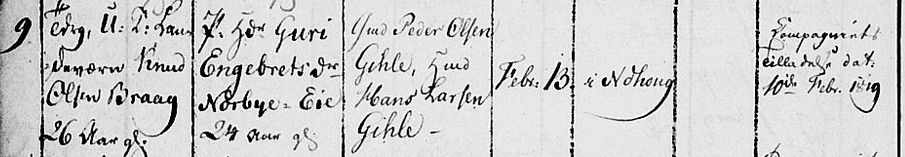 9.
Tdrg, U: K: Lan-
deværn Knud
Olsen Braag
26 Aar gl.
P: Hdr Guri
Engebrets dr
Norbye-Eie
24 Aar gl.
Gmd Peder Olsen
Gihle, Hmd
Hans Larsen
Gihle -
Febr. 13.
i
Compagniets
tilladelse dat:
10de Febr. 1819